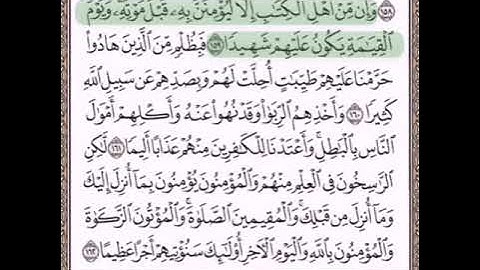 ١٥٨ وَإِن مِّنْ أَهْلِ الْكِتَٰبِ إِلَّا لَيُؤْمِنَنَّ بِهِۦ قَبْلَ مَوْتِهِۦ وَيَوْمَ
الْقِيَٰمَةِ يَكُونُ عَلَيْهِمْ شَهِيدًا ١٥٩ فَبِظُلْمٍ مِّنَ الَّذِينَ هَادُوا
حَرَّمْنَا عَلَيْهِمْ طَيِّبَٰتٍ أُحِلَّتْ لَهُمْ وَبِصَدِّهِمْ عَن سَبِيلِ اللَّهِ
كَثِيرًا ١٦٠ وَأَخْذِهِمُ الرِّبَوٰا وَقَدْ نُهُوا عَنْهُ وَأَكْلِهِمْ أَمْوَٰلَ
النَّاسِ بِالْبَٰطِلِ وَأَعْتَدْنَا لِلْكَٰفِرِينَ مِنْهُمْ عَذَابًا أَلِيمًا ١٦١ لَّٰكِنِ
الرَّٰسِخُونَ فِي الْعِلْمِ مِنْهُمْ وَالْمُؤْمِنُونَ يُؤْمِنُونَ بِمَا أُنزِلَ إِلَيْكَ
وَمَا أُنزِلَ مِن قَبْلِكَ وَالْمُقِيمِينَ الصَّلَوٰةَ وَالْمُؤْتُونَ الزَّكَوٰةَ
وَالْمُؤْمِنُونَ بِاللَّهِ وَالْيَوْمِ الْآخِرِ أُولَٰئِكَ سَنُؤْتِيهِمْ أَجْرًا عَظِيمًا ١٦٢